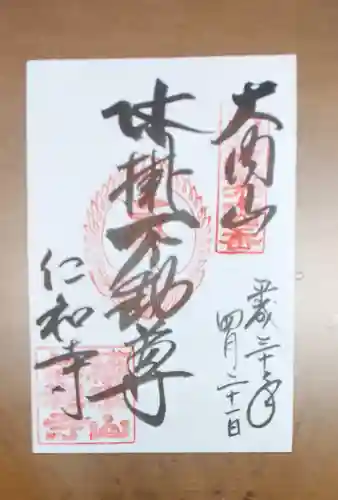 大内山
平成三十年
四月二十一日
水掛不動尊
仁和寺